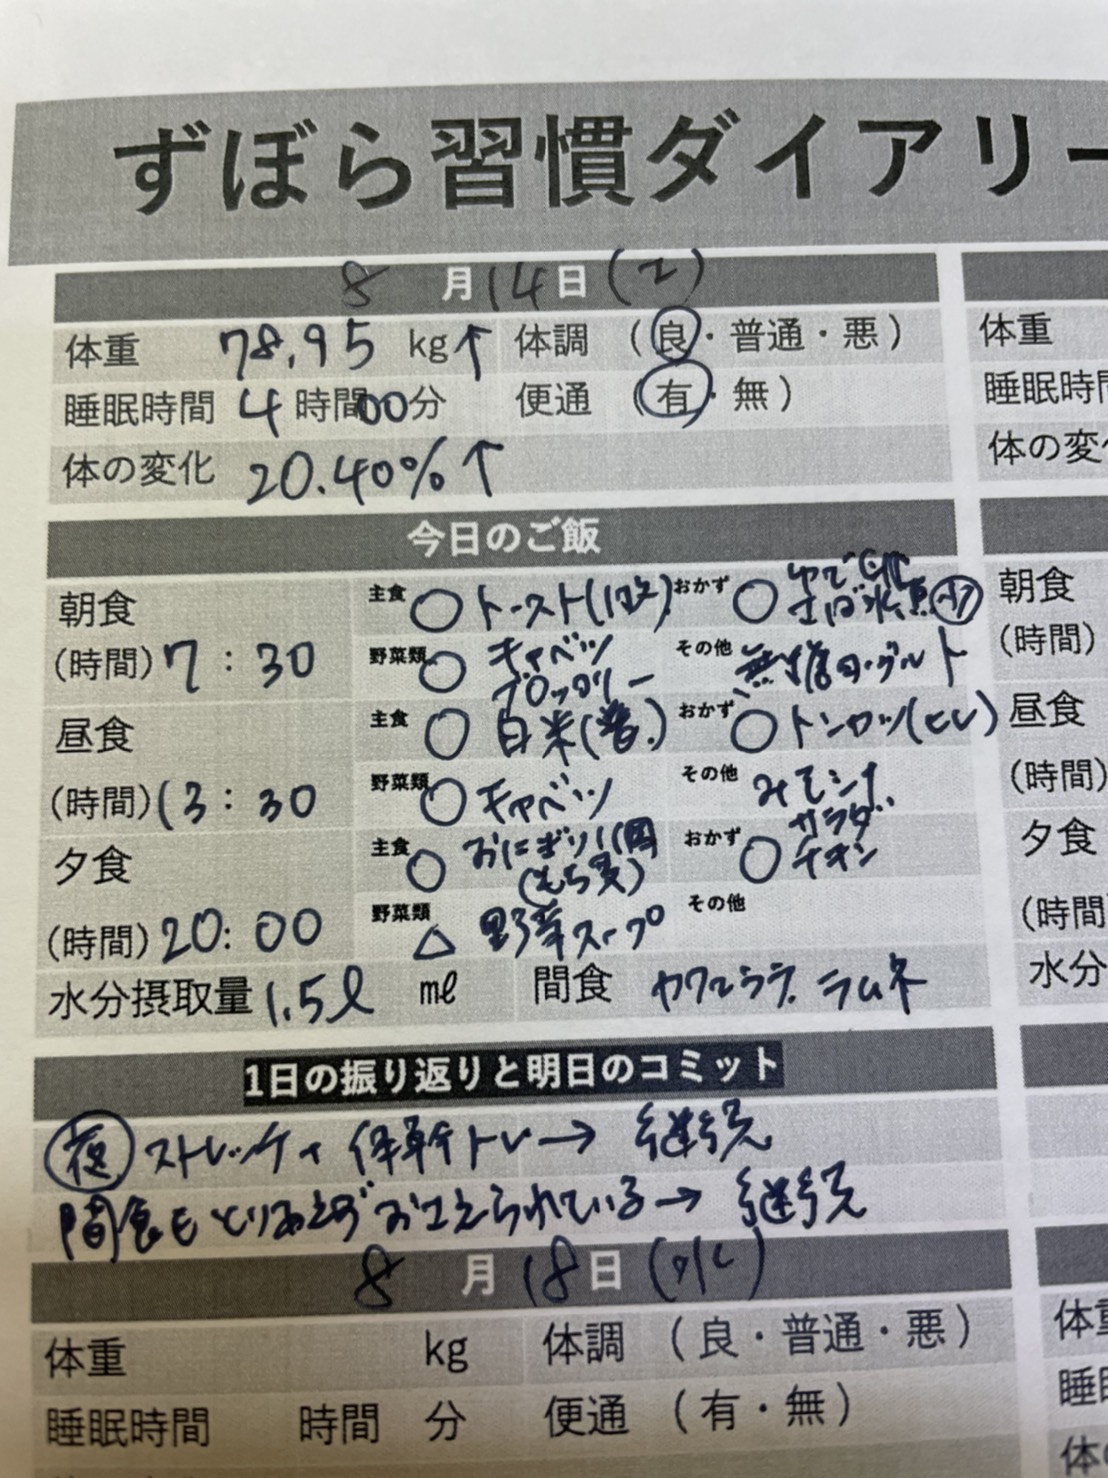 ずぼら習慣ダイアリー
8月14日(
体重 78.95 kg↑ 体調 (良・普通・悪)
体重
睡眠時間 4時間00分 便通 (有・無)
睡眠時間
体の変化 20.40%↑
体の変
今日のご飯
朝食
主食 ○ トースト(1枚) おかず ○ ゆで卵
さば水煮(小)
朝食
(時間) 7:30
野菜類 ○ キャベツ
ブロッコリー
その他 無糖ヨーグルト
(時間)
昼食
主食 ○ 白米(普.) おかず ○ トンカツ(ヒレ)
昼食
(時間) 13:30
野菜類 ○ キャベツ その他
(時間)
夕食
主食 ○ おにぎり1個
(もち麦)
おかず ○ サラダ
チキン
夕食
(時間) 20:00
野菜類 △ 野菜スープ その他
(時間
水分摂取量 1.5ℓ mℓ 間食 ラムネ
水分
1日の振り返りと明日のコミット
(夜) ストレッチ、体幹トレ→ 継続
間食もとりあえずおさえられている→ 継続
8月18日(水)
体重 kg 体調 (良・普通・悪)
体重
睡眠時間 時間 分 便通 (有・無)
睡